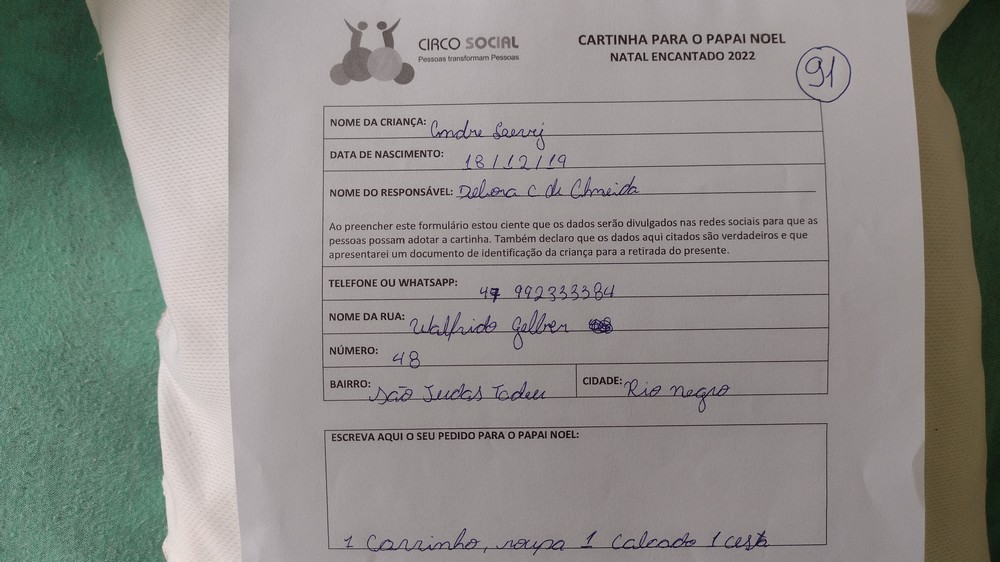 CIRCO SOCIAL
Pessoas transformam Pessoas
CARTINHA PARA O PAPAI NOEL
NATAL ENCANTADO 2022
91
NOME DA CRIANÇA: Andre
DATA DE NASCIMENTO: 18/12/19
NOME DO RESPONSÁVEL: Debora C de Almeida
Ao preencher este formulário estou ciente que os dados serão divulgados nas redes sociais para que as
pessoas possam adotar a cartinha. Também declaro que os dados aqui citados são verdadeiros e que
apresentarei um documento de identificação da criança para a retirada do presente.
TELEFONE OU WHATSAPP: 47 992333384
NOME DA RUA: Walfrido
NÚMERO: 48
BAIRRO: são Judas Tadeu CIDADE: Rio negro
ESCREVA AQUI O SEU PEDIDO PARA O PAPAI NOEL:
1 Carrinho, roupa 1 Calcado 1 cesta